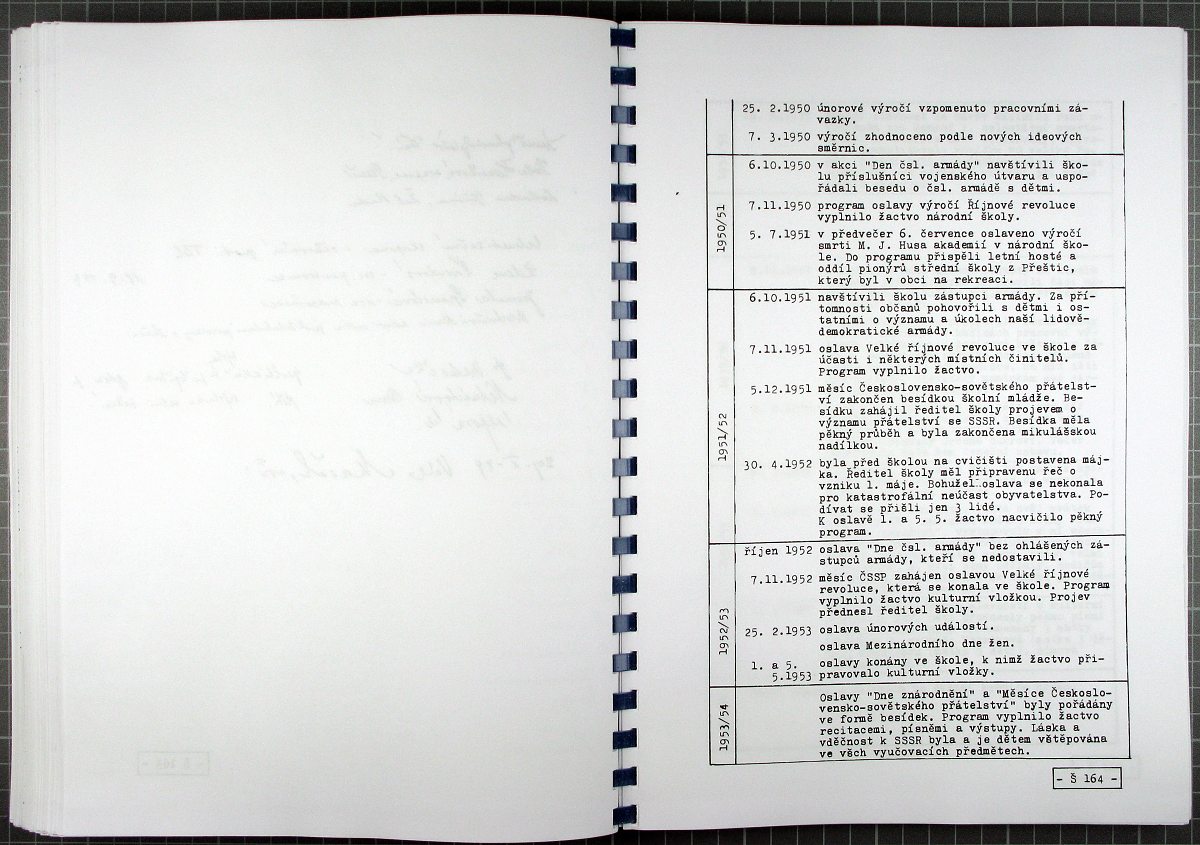 25. 2.1950 únorové výročí vzpomenuto pracovními zá-
vazky.
7. 3.1950 výročí zhodnoceno podle nových ideových
směrnic.
1950/51
6.10.1950 v akci "Den čsl. armády" navštívili ško-
lu příslušníci vojenského útvaru a uspo-
řádali besedu o čsl. armádě s dětmi.
7.11.1950 program oslavy výročí Říjnové revoluce
vyplnilo žactvo národní školy.
5. 7.1951 v předvečer 6. července oslaveno výročí
smrti M. J. Husa akademií v národní ško-
le. Do programu přispěli letní hosté a
oddíl pionýrů střední školy z Přeštic,
který byl v obci na rekreaci.
1951/52
6.10.1951 navštívili školu zástupci armády. Za pří-
tomnosti občanů pohovořili s dětmi i os-
tatními o významu a úkolech naší lidově-
demokratické armády.
7.11.1951 oslava Velké říjnové revoluce ve škole za
účasti i některých místních činitelů.
Program vyplnilo žactvo.
5.12.1951 měsíc Československo-sovětského přátelst-
ví zakončen besídkou školní mládže. Be-
sídku zahájil ředitel školy projevem o
významu přátelství se SSSR. Besídka měla
pěkný průběh a byla zakončena mikulášskou
nadílkou.
30. 4.1952 byla před školou na cvičišti postavena máj-
ka. Ředitel školy měl připravenu řeč o
vzniku 1. máje. Bohužel oslava se nekonala
pro katastrofální neúčast obyvatelstva. Po-
dívat se přišli jen 3 lidé.
K oslavě 1. a 5. 5. žactvo nacvičilo pěkný
program.
1952/53
říjen 1952 oslava "Dne čsl. armády" bez ohlášených zá-
stupců armády, kteří se nedostavili.
7.11.1952 měsíc ČSSP zahájen oslavou Velké říjnové
revoluce, která se konala ve škole. Program
vyplnilo žactvo kulturní vložkou. Projev
přednesl ředitel školy.
25. 2.1953 oslava únorových událostí.
oslava Mezinárodního dne žen.
1. a 5. oslavy konány ve škole, k nimž žactvo při-
5.1953 pravovalo kulturní vložky.
1953/54
Oslavy "Dne znárodnění" a "Měsíce Českoslo-
vensko-sovětského přátelství" byly pořádány
ve formě besídek. Program vyplnilo žactvo
recitacemi, písněmi a výstupy. Láska a
vděčnost k SSSR byla a je dětem vštěpována
ve všech vyučovacích předmětech.
- Š 164 -